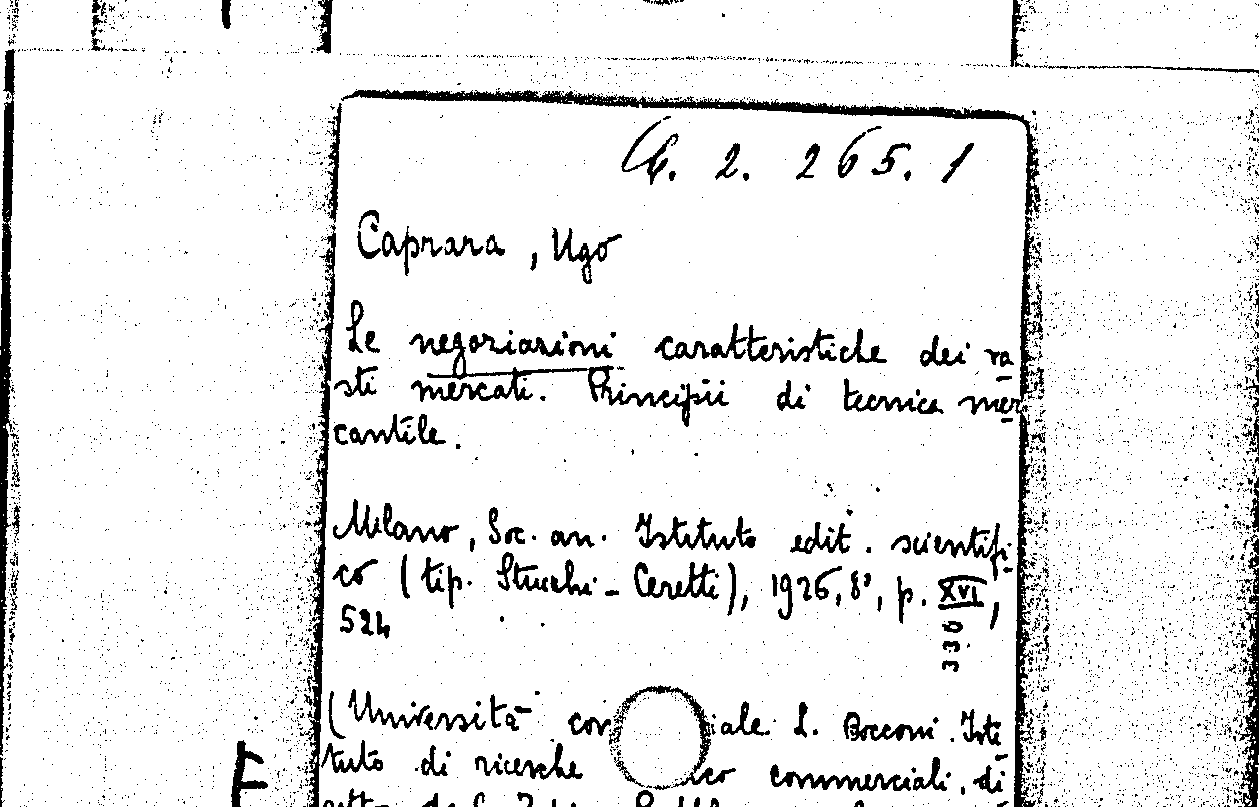 2. 265.1
Caprara, Ugo
Le negoziazioni caratteristiche dei va
sti mercati. Principii di tecnica mer
cantile.
Milano, Soc. an. Istituto edit. scientifi-
co (tip. Stucchi-Ceretti), 1926, 8°, p. XVI,
524
330
(Università iale L. Bocconi. Isti
tuto di ricerche commerciali, di